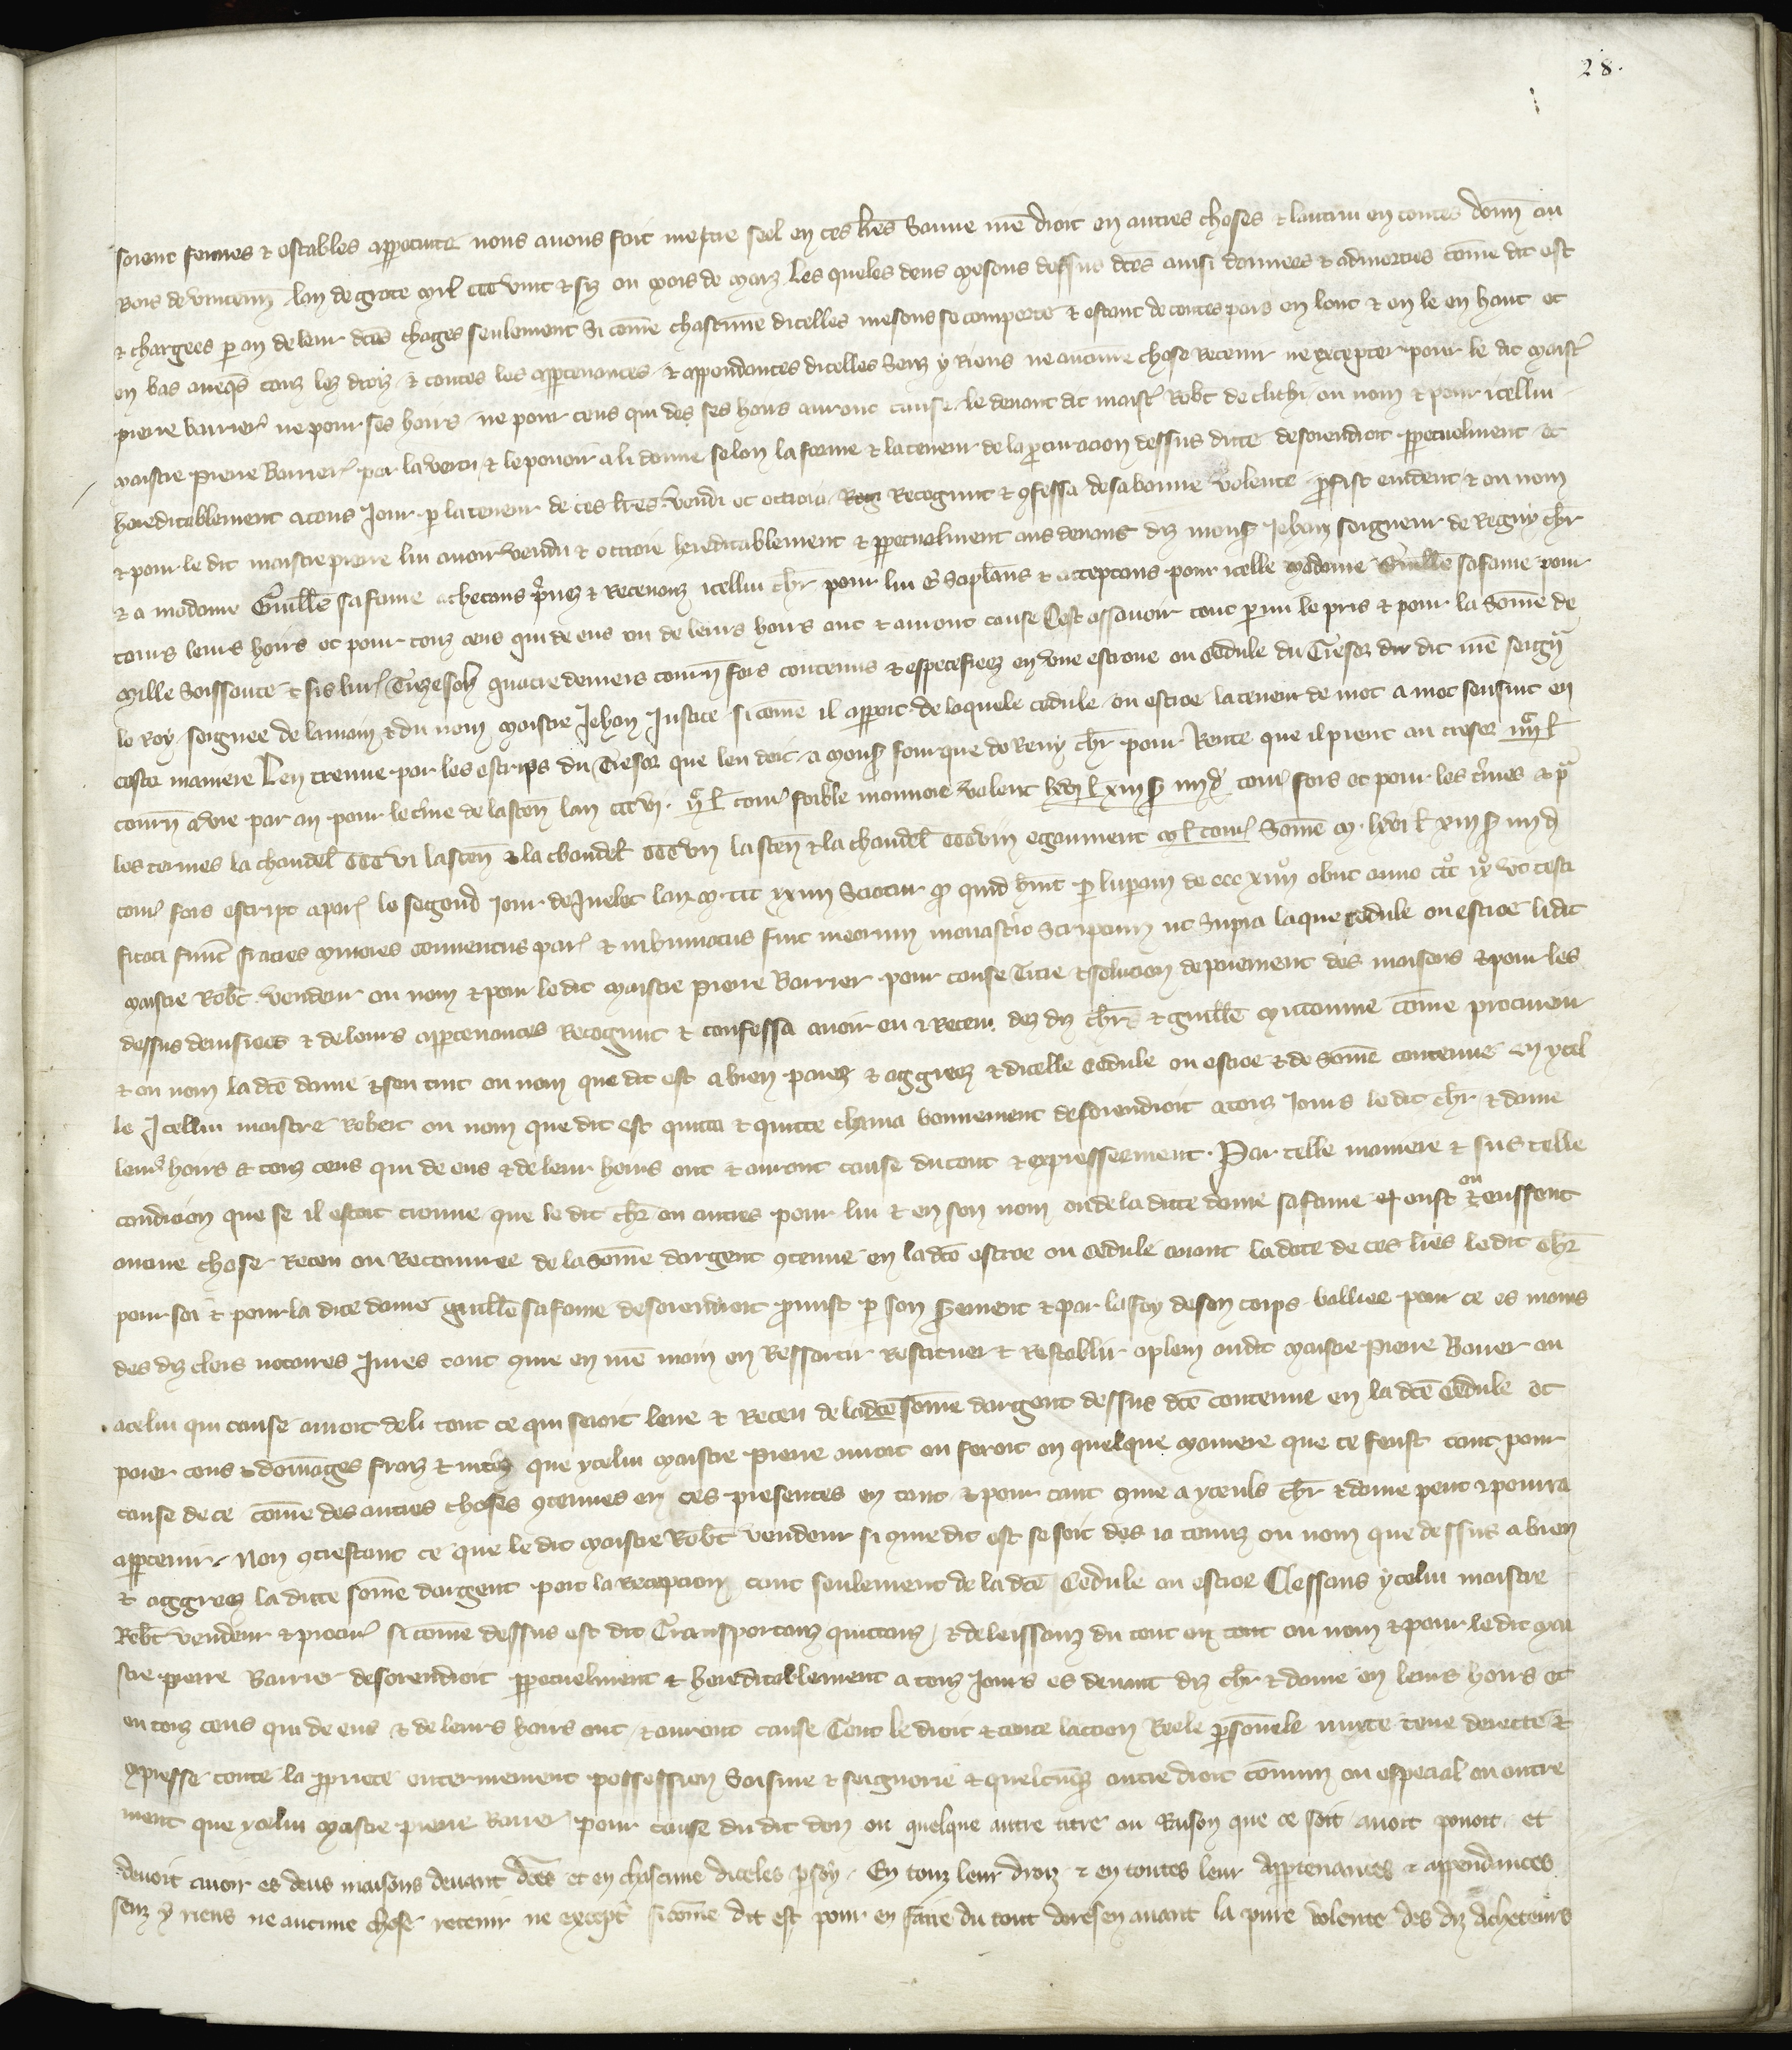 28.
soient fermes & estables a ppetuite nous avons fait mettre seel en ces lres Sauve nre droit en autres choses & lautrui en toutes donn au
Bois de vincenn lan de grace mil CCC vint & sis ou mois de marz Les queles deus mesons dessus dces ainsi donnees & admorties come dit est
& chargees p an de leur dces charges seulement Si come chascune dicelles mesons se comporte & estant de toutes pars en lonc & en le en haut et
en bas aveqs touz les droiz & toutes les appartenances & appendances dicelles Senz y Riens ne aucune chose Retenir ne excepter pour le dit maistr
pierre barrier ne pour ses hoirs ne pour ceus qui des ses hoirs auront cause le devant dit maistr Robt de clichi ou nom & pour icellui
maistre pierre Barrier par la vertu & le pouoir a li donne selon la forme & la teneur de la pcuracion dessus dicte desorendroit ppetuelment et
hereditablement a touz Jour p la teneur de ces lres vendi et ottroia Recognut & 9fessa de sa bonne volente pfist evident & ou nom
& pour le dit maistre pierre lui avoir vendu & ottroie hereditablement & ppetuelment aus devans diz mons Jehan seigneur de Regny chr
& a madame Guille sa fame achetans prenz & Recevanz icellui chr pour lui & acceptans pour icelle madame Guille sa fame pour
touz leurs hoirs et pour touz ceus qui de eus ou de leurs hoirs ont & auront cause Cest assavoir tout p mi le pris & pour la Some de
mille Soissante & sis liur Treze sols quatre deniers tourn fors contenus & especefiez en une escroue ou cedule du Tresor du dit nre seign
le Roy seignee de la main & du nom maistre Jehan Justice si come il apparoit de laquele cedule ou escroe la teneur de mot a mot sensuit en
ceste maniere Len treuve par les escrips du Tresor que len doit a mons fourque de Reny chr pour Rente que il prent au tresor
tourn a vie par an pour le tme de lascen lan CCC vi. tour foible monnoie valent lxvi l xiii s iiii d tour fors et pour les tmes a p
les termes la chandel CCC vi lascen & la chandel CCC vii lascen & la chandel CCC viii egaument m l tour Some m. lxvi l xiii s iiii d
tour fors escript a par le segond jour de Juelet lan m. CCC xxiiii Sciatur q quid p lupam de CCC xiiii obiit anno ut testi
ficati sunt fratres minores conventus par & inhumatus fuit in eorum monasterio Scriptum ut Supra laque cedule ou escroe li dit
maistre Robt vendeur ou nom & pour le dit maistre pierre Barrier pour cause Titre & solucion de paiement des maisons & pour les
dessus devisees & de leurs appartenances Recognut & confessa avoir eu & Receu des diz chr & guille come procureur
& ou nom la dce dame & sen tint ou nom que dit est a bien paiez & aggreez & dicelle cedule ou escroe & de Some contenue en ycel
le Jcellui maistre Robert ou nom que dit est quitta & quitte clama bonnement desorendroit a touz jours le dit chr & dame
leurs hoirs & touz ceus qui de eus & de leur hoirs ont & auront cause du tout & expressement. Par telle maniere & sus telle
condicion que se il estoit trouve que le dit chr ou autres pour lui & en son nom ou de la dicte dame sa fame eust ou eussent
aucune chose Receu ou Recouvree de la some dargent 9tenue en la dce escroe ou cedule avant la date de ces lres le dit chr
pour soi & pour la dice dame guille sa fame desorendroit pmist p son Serement & par la foy de son corps bailliee pour ce es mains
des diz clers notaires jures tout 9me en nre main en Ressortir Restituer & Restablir a plein au dit maistre pierre Barrier ou
a celui qui cause auroit de li tout ce qui seroit leve & Receu de la dce some dargent dessus dce contenue en la dce cedule et
paier cous & domages fraiz & mises que ycelui maistre pierre auroit ou feroit en quelque maniere que ce feust tant pour
cause de ce come des autres choses 9tenues en ces presentes en tant & pour tant 9me a yceuls chr & dame peut & pourra
appartenir. Non 9trestant ce que le dit maistre Robt vendeur si 9me dit est se soit des ia tenuz ou nom que dessus a bien
& aggreez la dicte some dargent par la Recepcion tant seulement de la dce cedule ou escroe Cessans ycelui maistre
Robt vendeur & procur si come dessus est dit Transportanz quittanz & delaissanz du tout en tout ou nom & pour le dit mai
stre pierre Barrier desorendroit ppetuelment & hereditablement a touz jours es devant diz chr & dame en leurs hoirs et
en touz ceus qui de eus & de leurs hoirs ont & auront cause Tout le droit & toute laccion Reele psonele mixte teue directe &
expresse toute la ppriete entierement possession Saisine & seignorie & quelcunqs autre droit comun ou especial ou autre
ment que ycelui maistre pierre Barrier pour cause du dit don ou quelque autre titre ou Raison que ce soit avoit povoit et
devoit avoir es deus maisons devant dces et en chascune diceles p soy. En touz leur droiz & en toutes leur appartenances & appendances
senz y riens ne aucune chose retenir ne except si come dit est pour en faire du tout doresenavant la pure volente des diz acheteurs